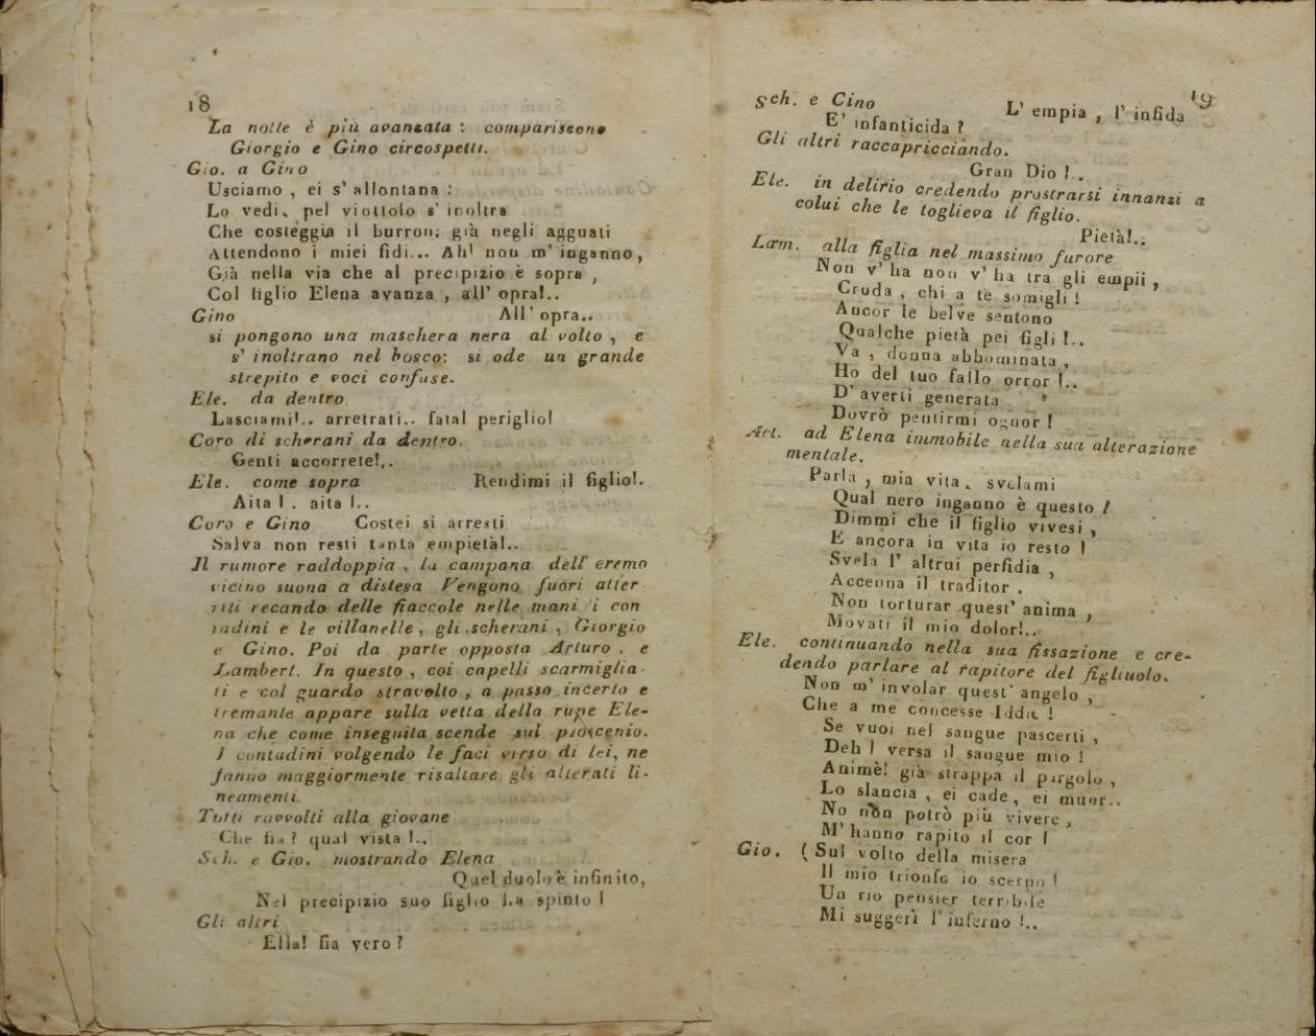 18
La notte è più avanzata : compariscono
Giorgio e Gino circospetti.
Gio. a Gino
Usciamo , ei s' allontana :
Lo vedi, pel viottolo s' inoltra
Che costeggia il burron; già negli agguati
Attendono i miei fidi... Ah! non m' inganno,
Già nella via che al precipizio è sopra ,
Col figlio Elena avanza , all' opra!..
Gino All' opra..
si pongono una maschera nera al volto , e
s' inoltrano nel bosco: si ode un grande
strepito e voci confuse.
Ele. da dentro
Lasciami!.. arretrati.. fatal periglio!
Coro di scherani da dentro.
Genti accorrete!..
Ele. come sopra Rendimi il figlio!.
Aita ! . aita !..
Coro e Gino Costei si arresti
Salva non resti tanta empietà!..
Il rumore raddoppia , la campana dell' eremo
vicino suona a distesa Vengono fuori atter
riti recando delle fiaccole nelle mani i con
tadini e le villanelle , gli scherani , Giorgio
e Gino. Poi da parte opposta Arturo . e
Lambert. In questo , coi capelli scarmiglia-
ti e col guardo stravolto , a passo incerto e
tremante appare sulla vetta della rupe Ele-
na che come inseguita scende sul proscenio.
I contadini volgendo le faci verso di lei, ne
fanno maggiormente risaltare gli alterati li-
neamenti.
Tutti ravvolti alla giovane
Che fia? qual vista !..
Sch. e Gio. mostrando Elena
Quel duolo è infinito,
Nel precipizio suo figlio ha spinto !
Gli altri
Ella! fia vero ?
19
Sch. e Cino L' empia , l' infida
E' infanticida ?
Gli altri raccapricciando.
Gran Dio !..
Ele. in delirio credendo prostrarsi innanzi a
colui che le toglieva il figlio.
Pietà!..
Lam. alla figlia nel massimo furore
Non v' ha non v' ha tra gli empii ,
Cruda , chi a te somigli !
Ancor le belve sentono
Qualche pietà pei figli !..
Va , donna abbominata ,
Ho del tuo fallo orror !..
D' averti generata
Dovrò pentirmi ognor !
Art. ad Elena immobile nella sua alterazione
mentale.
Parla , mia vita , svelami
Qual nero inganno è questo !
Dimmi che il figlio vivesi ,
E ancora in vita io resto !
Svela l' altrui perfidia ,
Accenna il traditor .
Non torturar quest' anima ,
Movati il mio dolor!..
Ele. continuando nella sua fissazione e cre-
dendo parlare al rapitore del figliuolo.
Non m' involar quest' angelo ,
Che a me concesse Iddio !
Se vuoi nel sangue pascerti ,
Deh ! versa il sangue mio !
Animè! già strappa il pargolo ,
Lo slancia , ei cade , ei muor..
No non potrò più vivere ,
M' hanno rapito il cor !
Gio. (Sul volto della misera
Il mio trionfo io scerno !
Un rio pensier terribile
Mi suggerì l' inferno !..